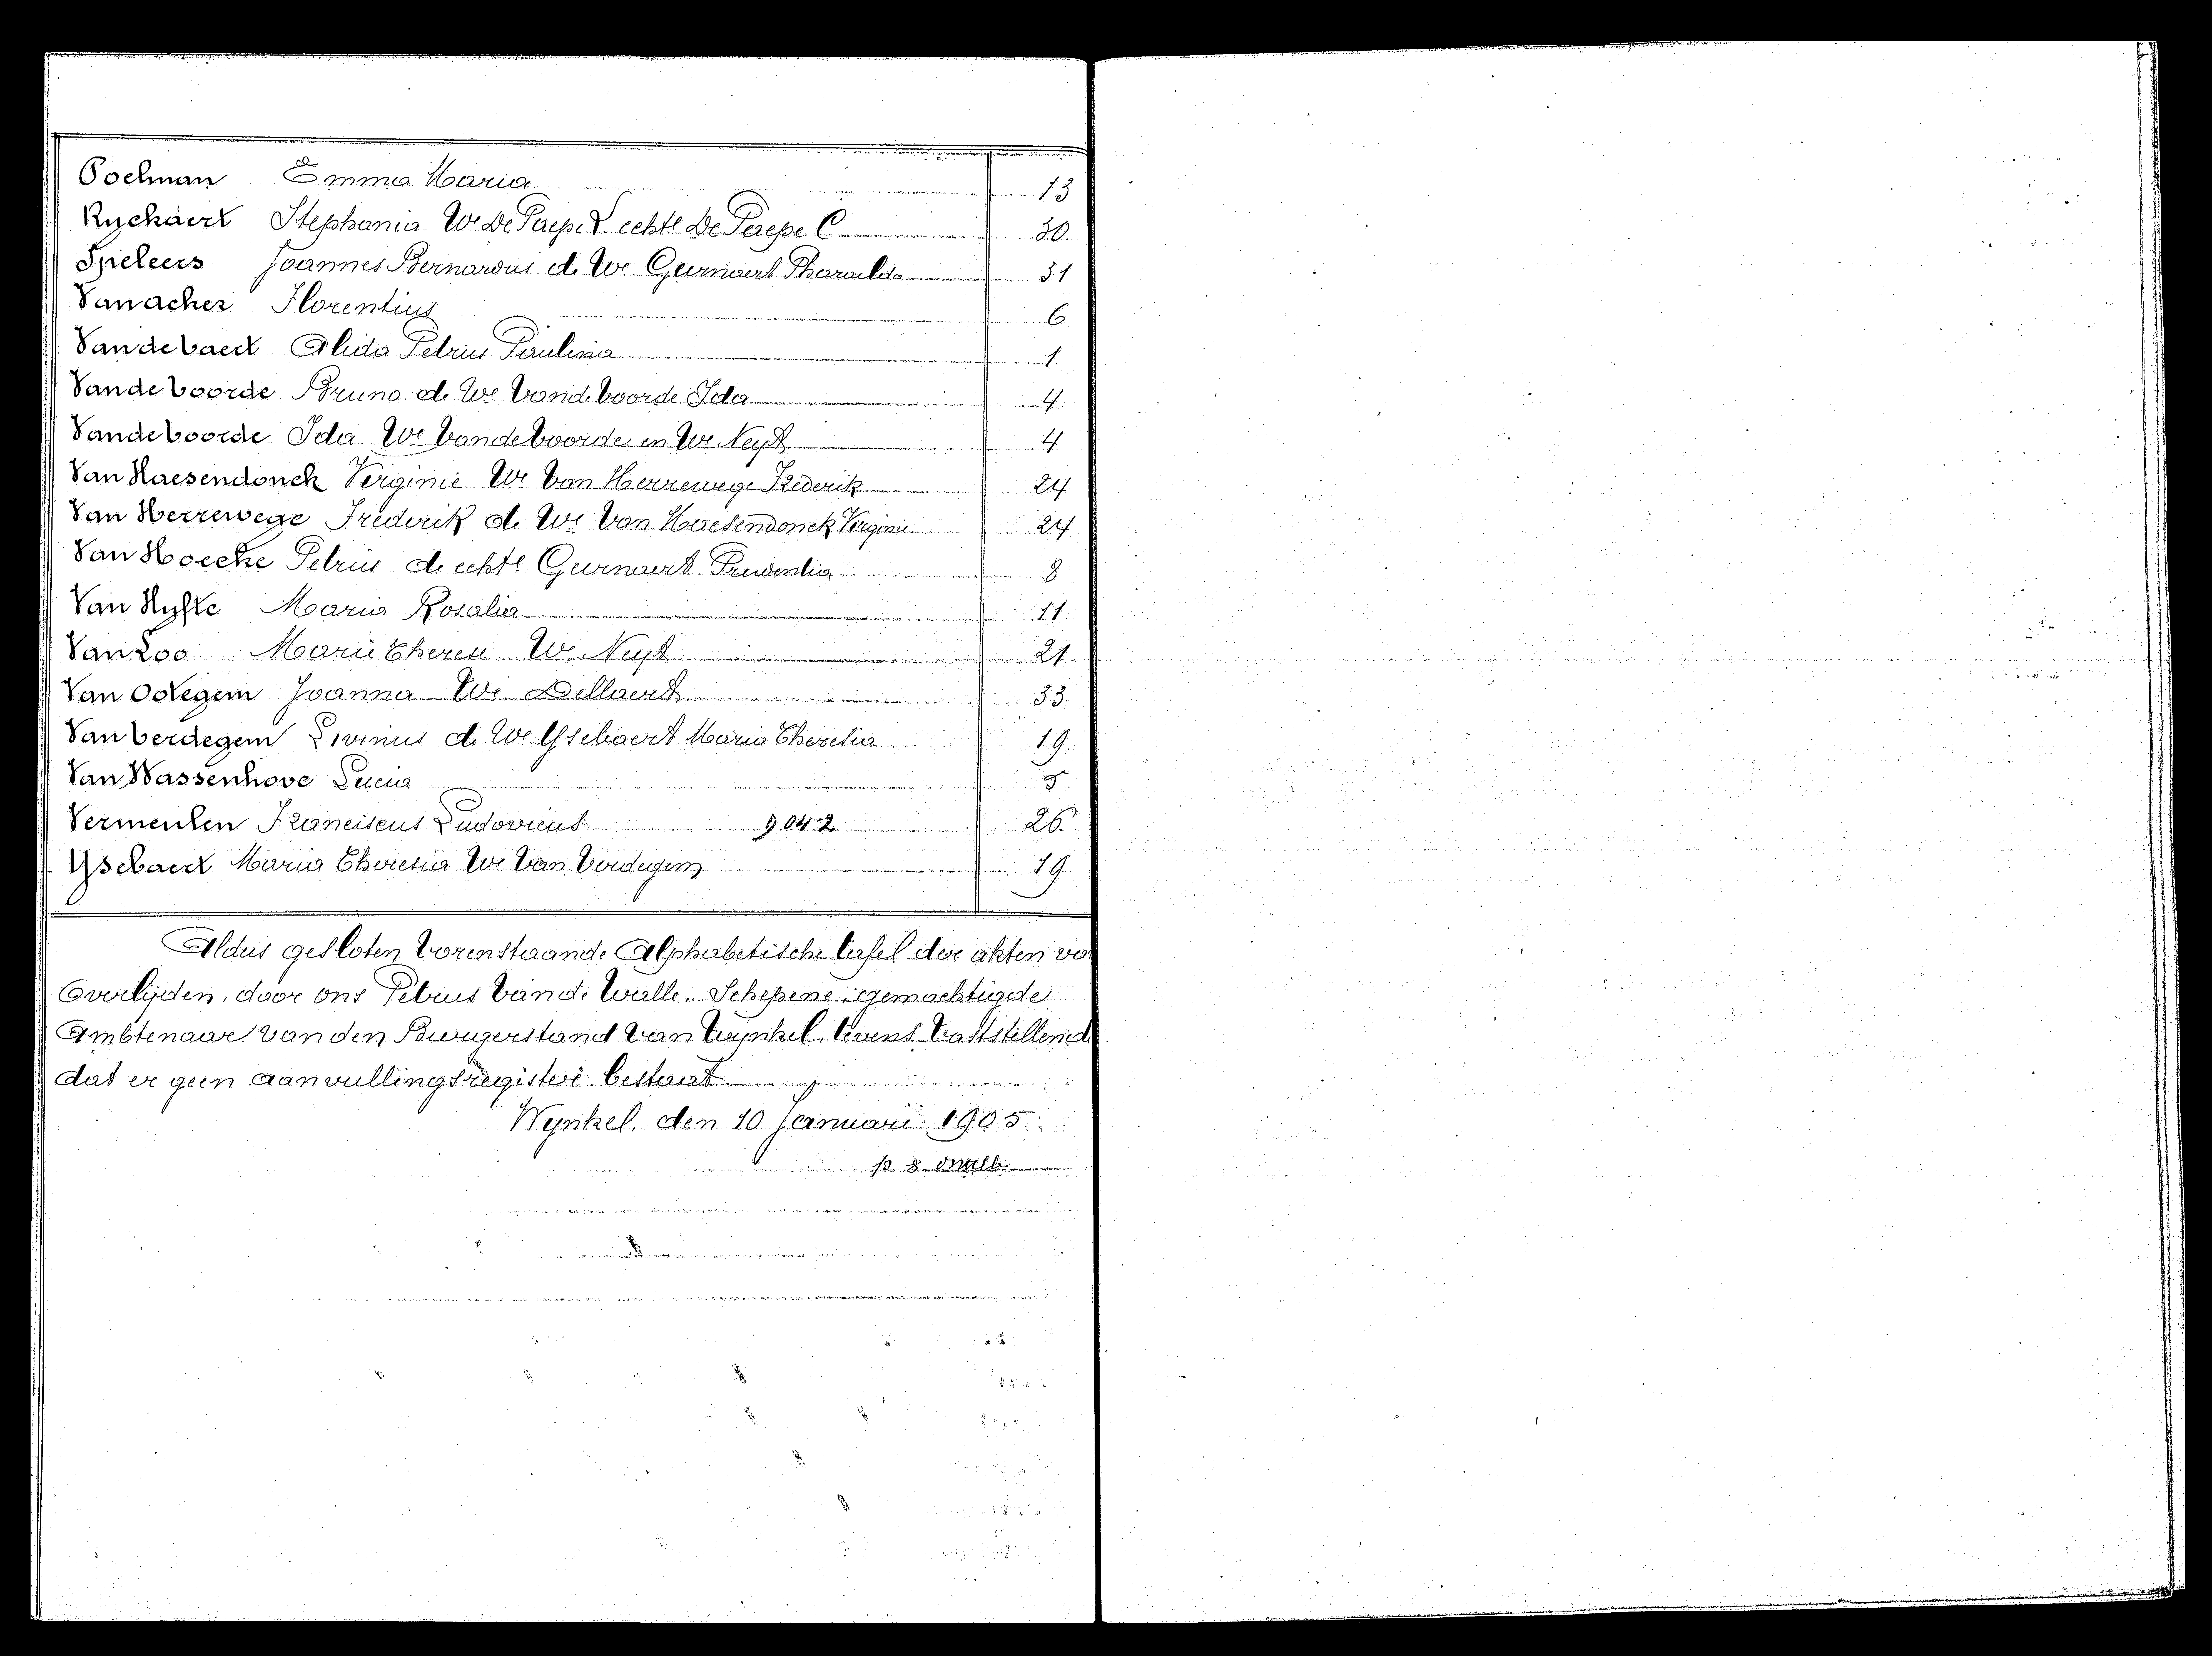 Poelman Emma Maria 13
Ryckaert Stephania We De Paepe L echte De Paepe C 30
Speleers Joannes Bernardus de We Geirnaert Pharaïlda 31
Vanacker Florentius 6
Vandevaert Alida Petrus Paulina 1
Vandevoorde Bruno de We Vandevoorde Ida 4
Vandevoorde Ida We Vandevoorde en We Neyt 4
Van Haesendonck Verginie We Van Herrewege Frederik 24
Van Herrewege Frederik de We Van Haesendonck Verginie 24
Van Hoecke Petrus de echte Geirnaert Prudentia 8
Van Hyfte Maria Rosalia 11
Van Loo Marie Therese We Neyt 21
Van Ootegem Joanna We Dellaert 33
Vanverdegem Livinus de We Ysebaert Maria Theresia 19
Van Wassenhove Lucia 5
Vermeulen Franciscus Ludovicus 26
Ysebaert Maria Theresia We Van Verdegem 19
Aldus gesloten vorenstaande Alphabetische tafel der akten va
Overlijden, door ons Petrus Van de Walle, Schepene, gemachtigde
Ambtenaar van den Burgerstand van Wynkel, tevens vaststellend
dat er geen aanvullingsregister bestaat
Wynkel, den 10 Januari 1905